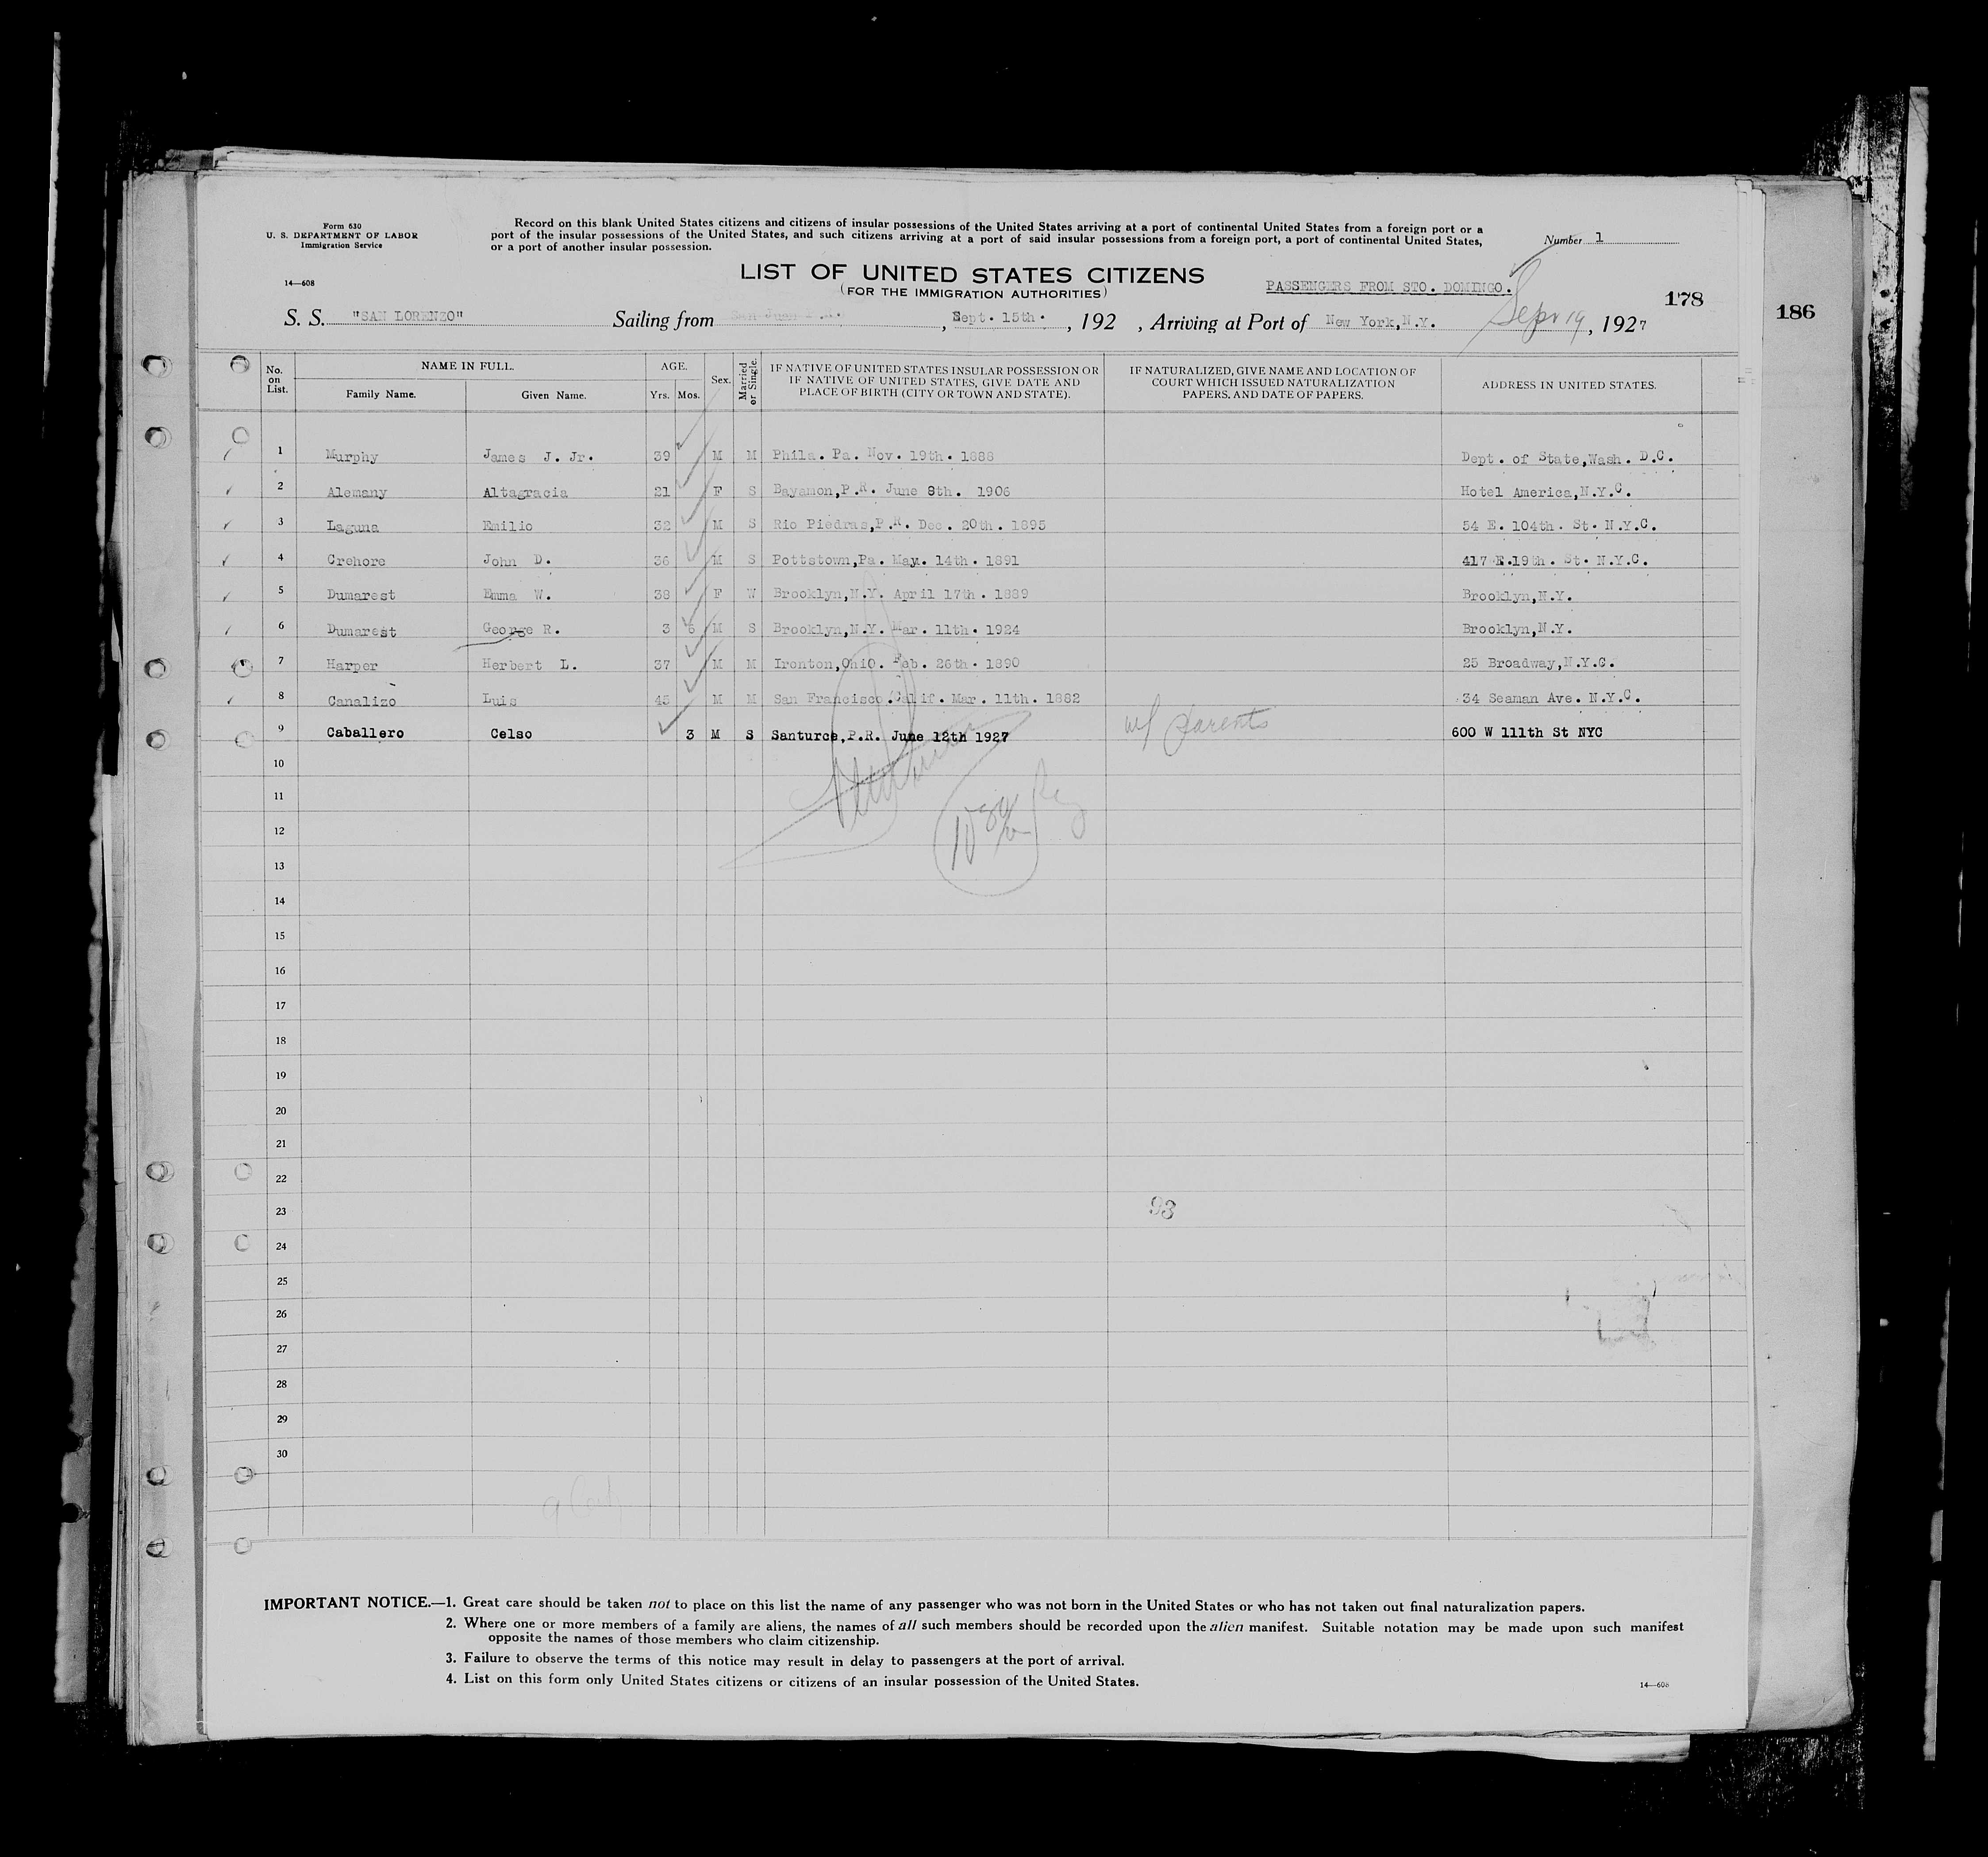 Form 630
U. S. DEPARTMENT OF LABOR
Immigration Service
14—608
Record on this blank United States citizens and citizens of insular possessions of the United States arriving at a port of continental United States from a foreign port or a
port of the insular possessions of the United States, and such citizens arriving at a port of said insular possessions from a foreign port, a port of continental United States,
or a port of another insular possession.
Number 1
LIST OF UNITED STATES CITIZENS
(FOR THE IMMIGRATION AUTHORITIES)
PASSENGERS FROM STO. DOMINGO.
178
186
S. S. "SAN LORENZO" Sailing from San Juan P.R. , Sept. 15th. , 192 , Arriving at Port of New York,N.Y. Sept 19, 1927
No. on List. NAME IN FULL. AGE. Sex. Married or Single. IF NATIVE OF UNITED STATES INSULAR POSSESSION OR IF NATIVE OF UNITED STATES, GIVE DATE AND PLACE OF BIRTH (CITY OR TOWN AND STATE). IF NATURALIZED, GIVE NAME AND LOCATION OF COURT WHICH ISSUED NATURALIZATION PAPERS, AND DATE OF PAPERS. ADDRESS IN UNITED STATES.
Family Name. Given Name. Yrs. Mos.
1 Murphy James J. Jr. 39 M M Phila. Pa. Nov. 19th. 1888 Dept. of State,Wash. D.C.
2 Alemany Altagracia 21 F S Bayamon,P.R. June 8th. 1906 Hotel America,N.Y.C.
3 Laguna Emilio 32 M S Rio Piedras,P.R. Dec. 20th. 1895 54 E. 104th. St. N.Y.C.
4 Crehore John D. 36 M S Pottstown,Pa. May. 14th. 1891 417 E.19th. St. N.Y.C.
5 Dumarest Emma W. 38 F W Brooklyn,N.Y. April 17th. 1889 Brooklyn,N.Y.
6 Dumarest George R. 3 6 M S Brooklyn,N.Y. Mar. 11th. 1924 Brooklyn,N.Y.
7 Harper Herbert L. 37 M M Ironton,Ohio. Feb. 26th. 1890 25 Broadway,N.Y.C.
8 Canalizo Luis 45 M M San Francisco.Calif. Mar. 11th. 1882 34 Seaman Ave. N.Y.C.
9 Caballero Celso 3 M S Santurce,P.R. June 12th 1927 w/ parents 600 W 111th St NYC
10
11
12
13
14
15
16
17
18
19
20
21
22
23 93
24
25
26
27
28
29
30
IMPORTANT NOTICE.—1. Great care should be taken not to place on this list the name of any passenger who was not born in the United States or who has not taken out final naturalization papers.
2. Where one or more members of a family are aliens, the names of all such members should be recorded upon the alien manifest. Suitable notation may be made upon such manifest
opposite the names of those members who claim citizenship.
3. Failure to observe the terms of this notice may result in delay to passengers at the port of arrival.
4. List on this form only United States citizens or citizens of an insular possession of the United States.
14—608